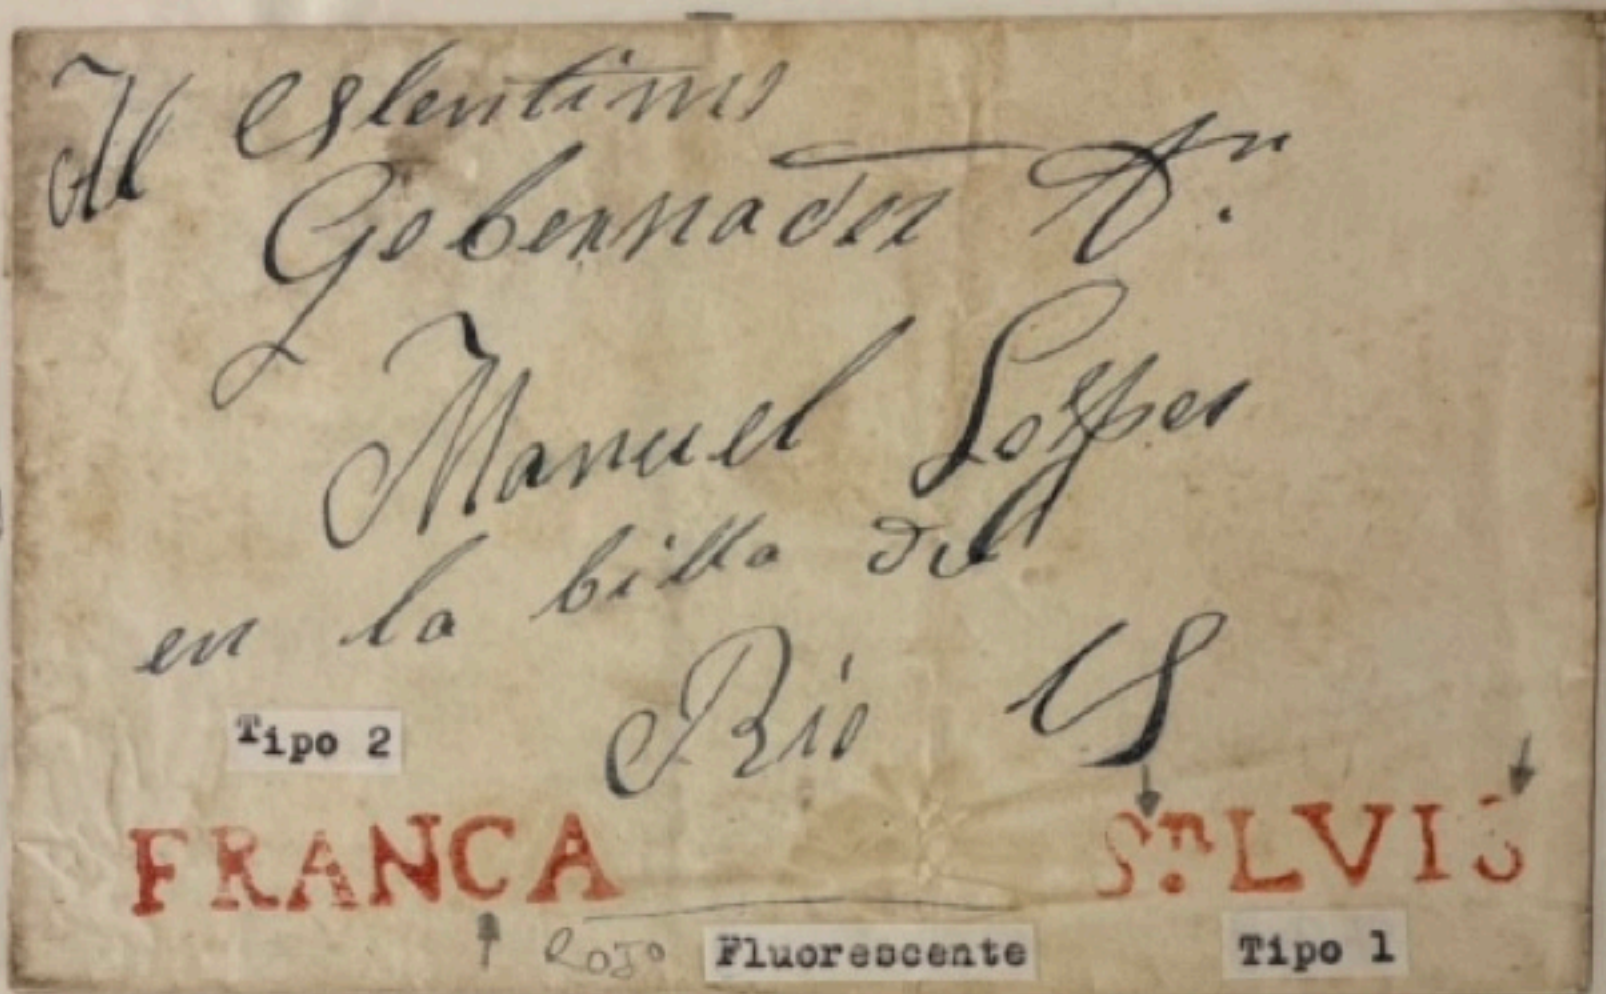 Al Eslentimo
Gobernador Dn.
Manuel Lopes
en la billa del
Rio 4º
Tipo 2
FRANCA
Sn. LVIS
ROJO Fluorescente Tipo 1